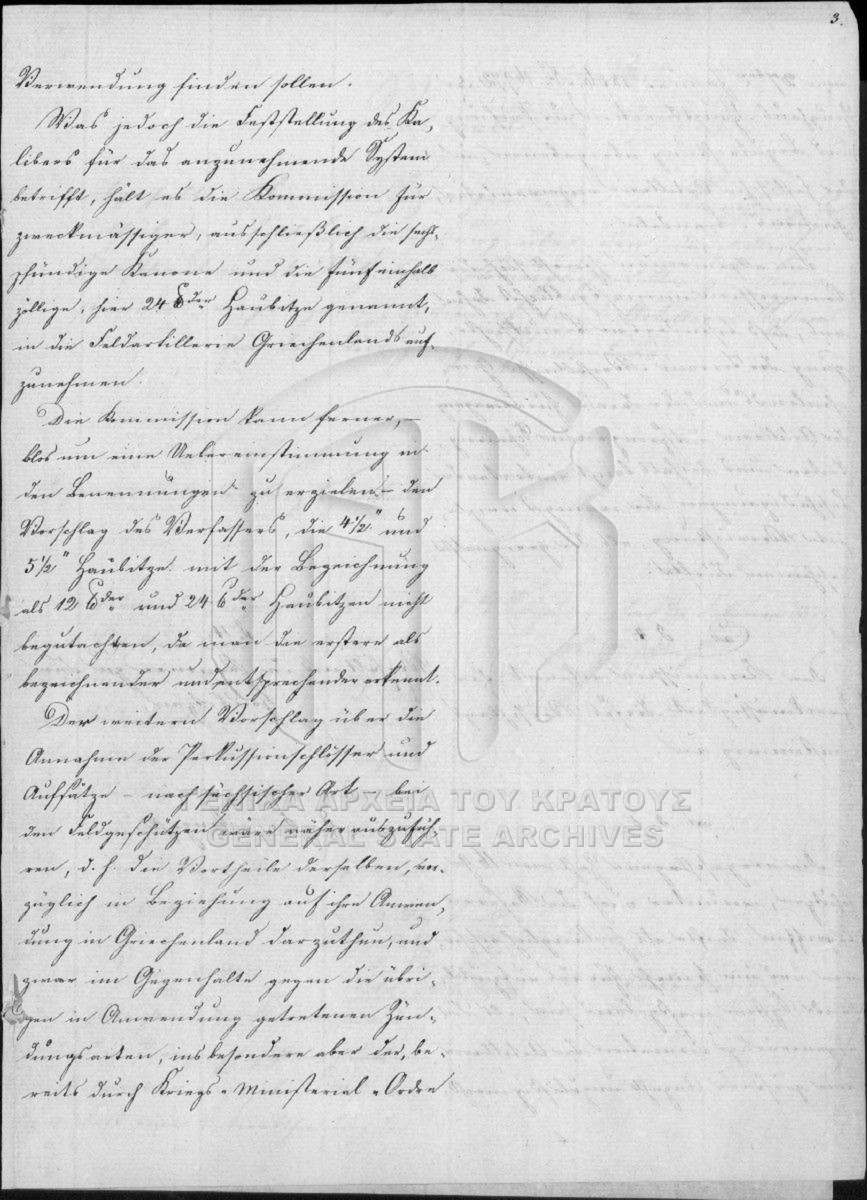 3.
Verwendung finden sollen.
Was jedoch die Feststellung des Ka-
libers für das anzunehmende System
betrifft, hält es die Kommission für
zweckmässiger, ausschließlich die sechs-
pfündige Kanone und die fünfeinhalb
zöllige, hier 24 ℔der Haubitze genannt,
in die Feldartillerie Griechenlands auf-
zunehmen.
Die Kommission kann ferner, –
blos um eine Uebereinstimmung in
den Benennungen zu erzielen – den
Vorschlag des Verfassers, die 4 1/2" und
5 1/2" Haubitze mit der Bezeichnung
als 12 ℔der und 24 ℔der Haubitzen nicht
begutachten, da man die erstere als
bezeichnender und entsprechender erkennt.
Der weitere Vorschlag über die
Annahme der Perkussionschlösser und
Aufsätze – nach sächsischer Art – bei
den Feldgeschützen wäre näher auszufüh-
ren, d. h. die Vortheile derselben, vor-
züglich in Beziehung auf ihre Anwen-
dung in Griechenland darzuthun, und
zwar im Gegenhalte gegen die übri-
gen in Anwendung getretenen Zün-
dungsarten, insbesondere aber der, be-
reits durch Kriegs-Ministerial-Ordre
ΓΕΝΙΚΑ ΑΡΧΕΙΑ ΤΟΥ ΚΡΑΤΟΥΣ
GENERAL STATE ARCHIVES